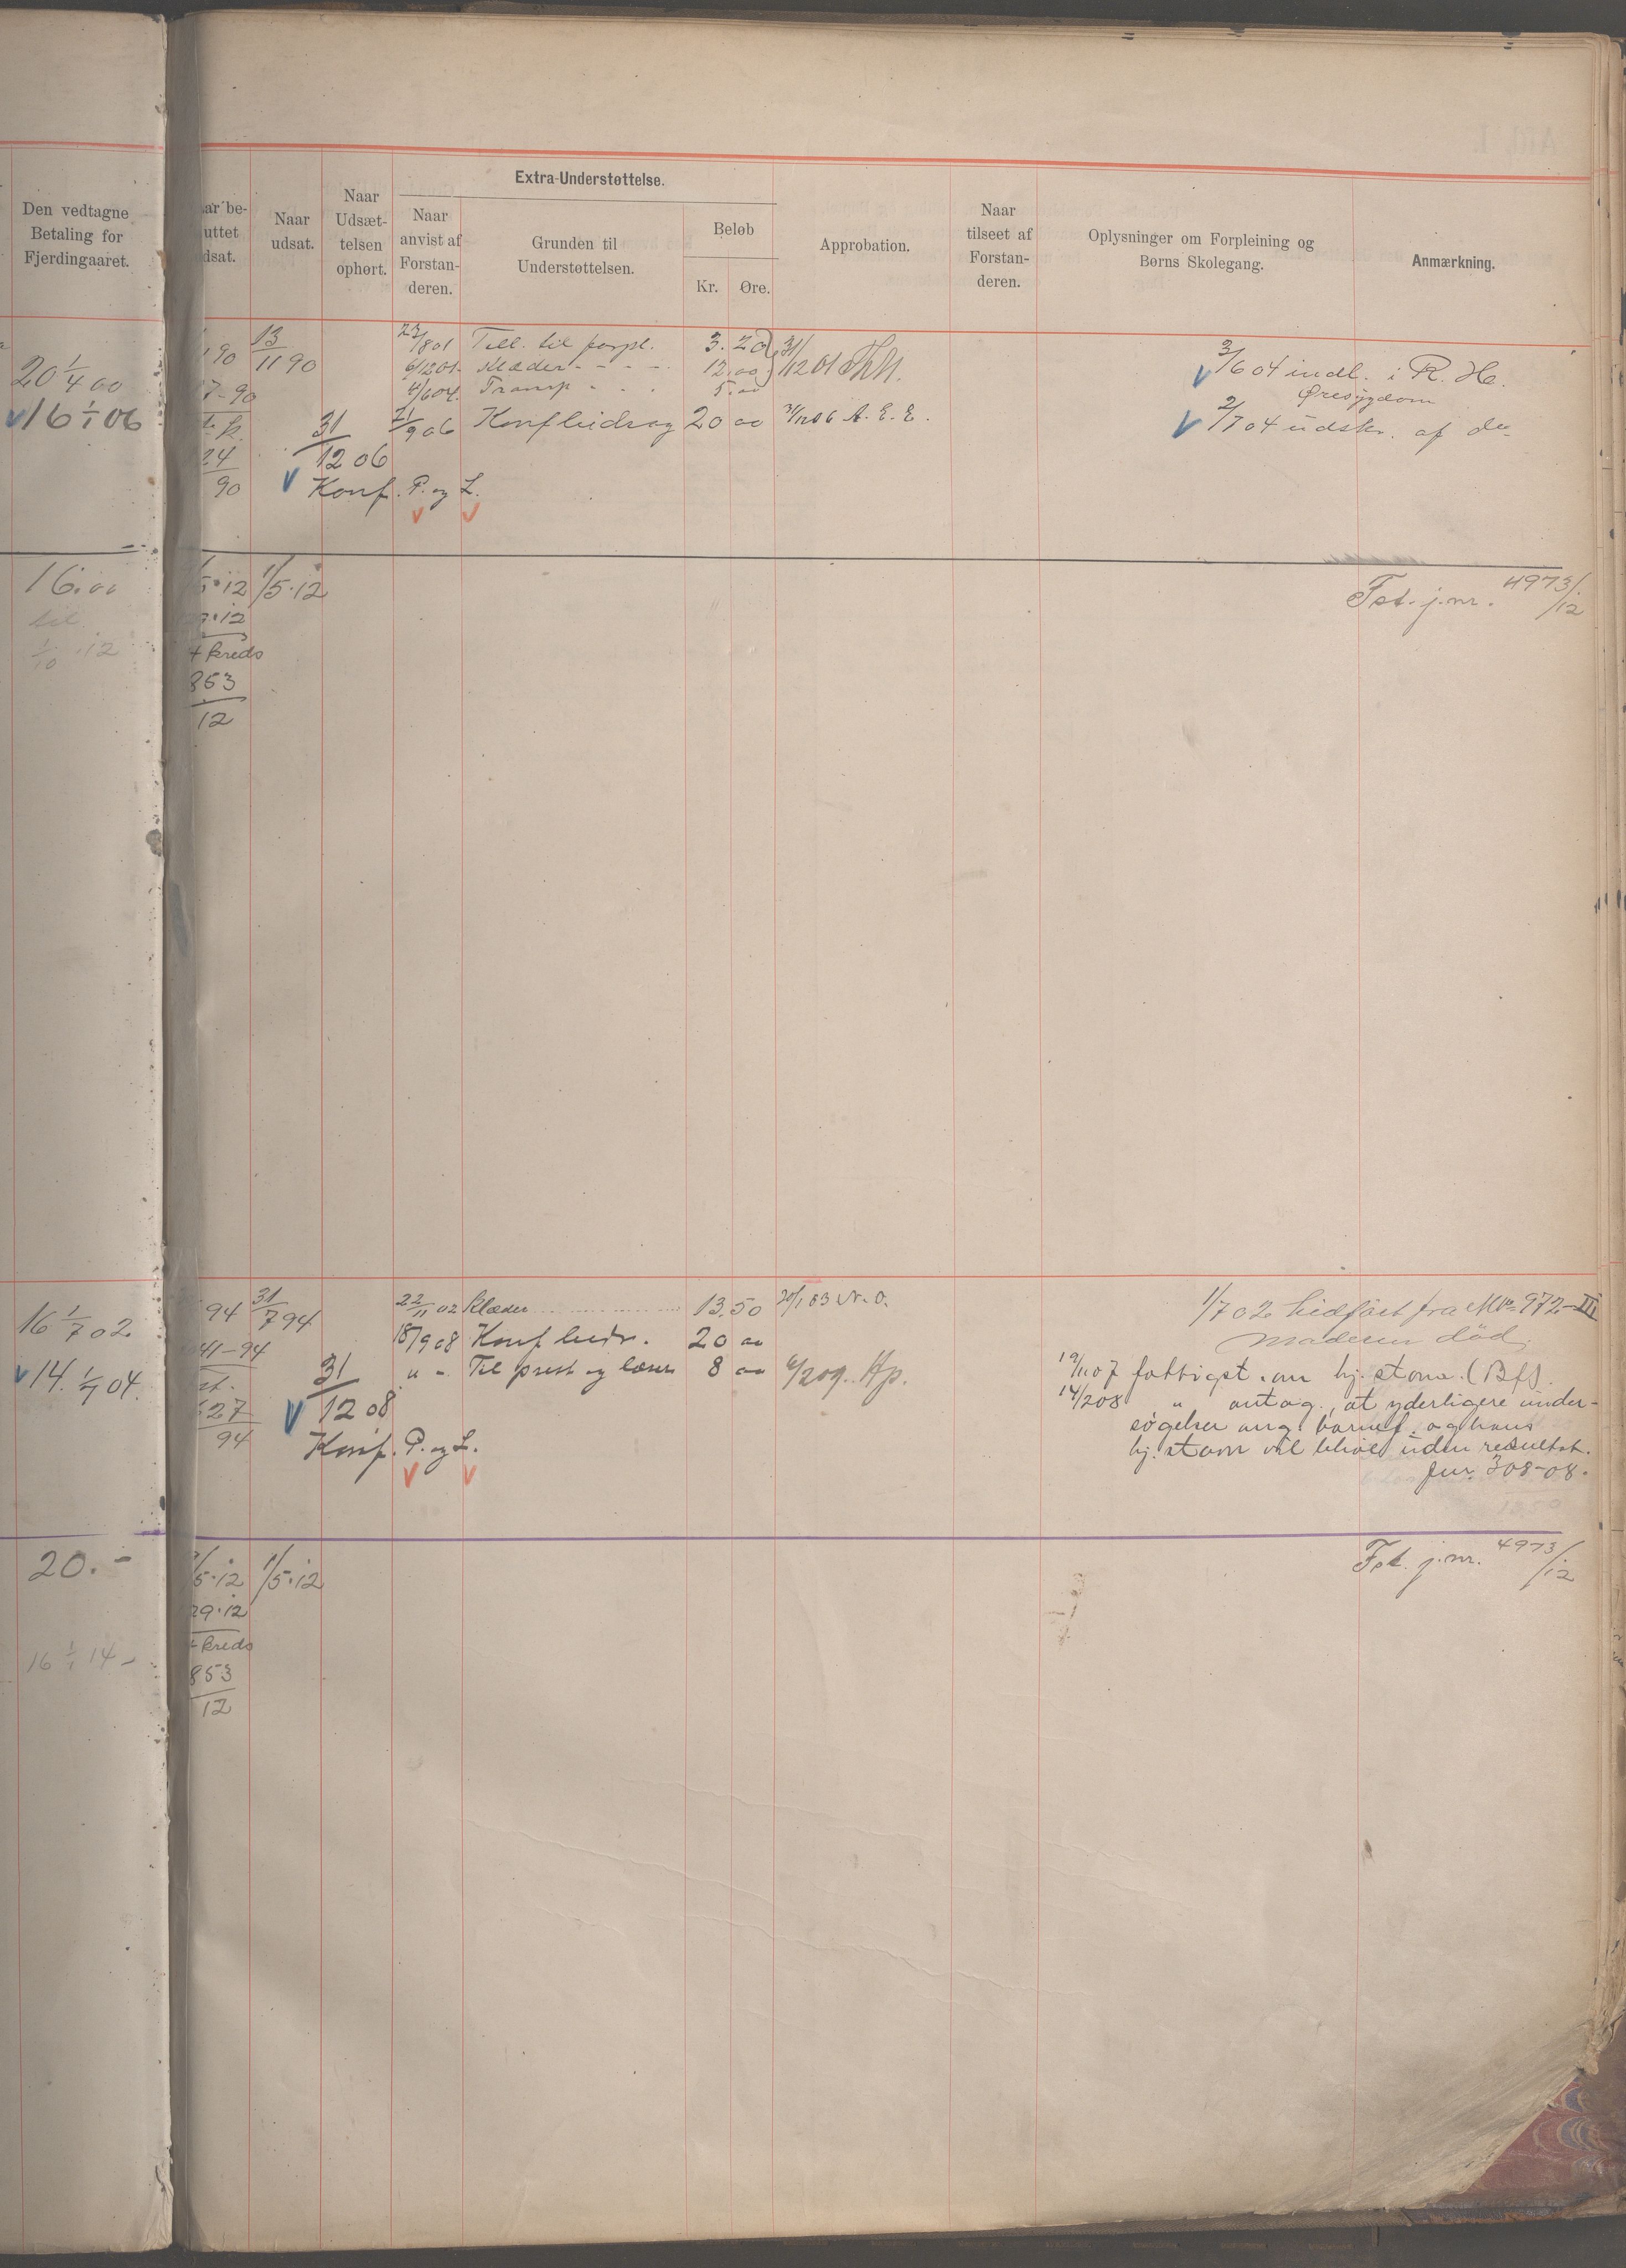 Extra-Understøttelse.
Den vedtagne
Betaling for
Fjerdingaaret.
ar be-
uttet
dsat.
Naar
udsat.
Naar
Udsæt-
telsen
ophørt.
Naar
anvist af
Forstan-
deren.
Grunden til
Understøttelsen.
Beløb
Kr. Øre.
Approbation.
Naar
tilseet af
Forstan-
deren.
Oplysninger om Forpleining og
Børns Skolegang.
Anmærkning.
20 1/4 00
16 1/1 06
90
7-90
24
90
13/11 90
31/12 06
Konf. P. og L.
23/8 01 Till. til forpl. 3.20
6/12 01 Klæder - - - 12.00
31/12 01
4/6 04 Transp - - - 5.00
21/9 06 Konfbidrag 20 00 31/12 06 A. E. E.
3/6 04 indl. i R. H.
Øresygdom
2/7 04 udskr. af do
16.00
til
1/10 12
5.12 1/5.12
9.12
kreds
853
12
Fst. j.nr. 4973/12
16 1/7 02
14. 1/1 04.
94
41-94
527
94
31/7 94
31/12 08
Konf. P. og L.
22/11 02 Klæder 13.50 20/1 03 N. O.
18/9 08 Konf bidr. 20 00
" - Til prest og læser 8 00 6/2 09. Kp.
1/7 02 hidført fra No 972-III
Moderen död.
19/11 07 fattigst. om hj. stavn. (Bf).
14/2 08 " antag., at yderligere under-
søgelser ang. barnef. og hans
hj. stavn vil blive uden resultat.
Jnr. 308-08.
20.-
16 1/1 14 -
5.12 1/5.12
29.12
kreds
853
12
Fst. j.nr. 4973/12